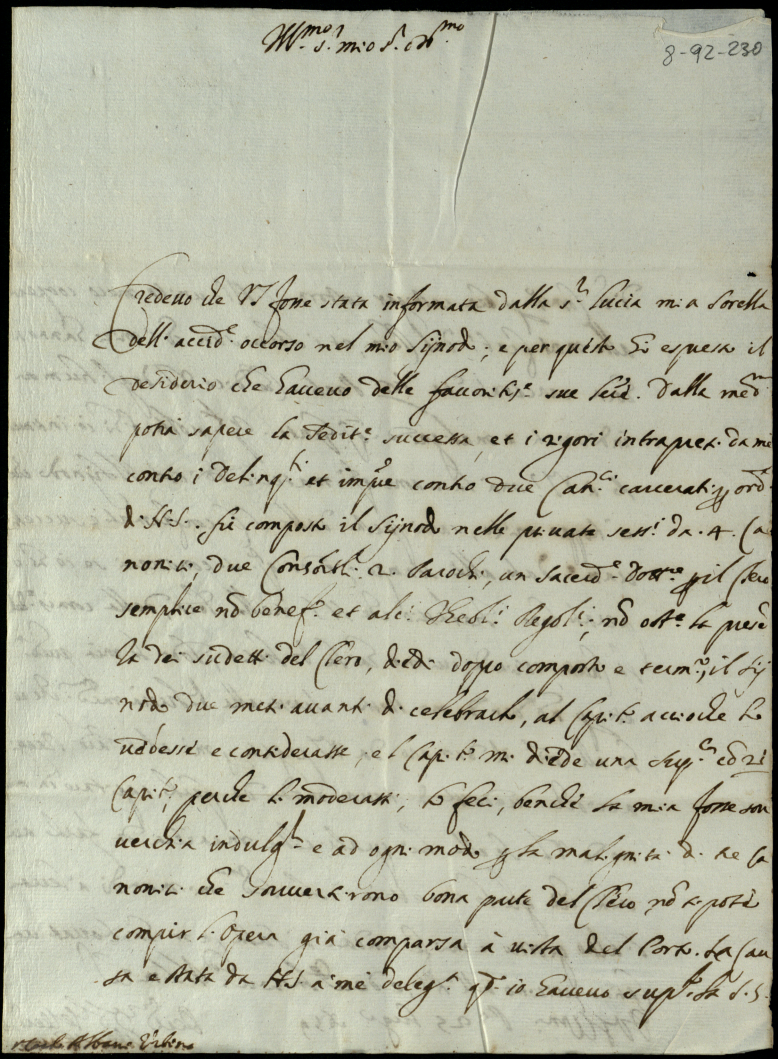 Ill.mo s.r mio s.r oss.mo
8-92-230
Credevo che VS fosse stata informata dalla s.ra Lucia mia sorella
dell' accid.e occorso nel mio Sijnodo; e per questo gli espressi il
desiderio che havevo delle favoritiss.e sue lettere. Dalla med.ma
potrà sapere la sedit.e successa, et i rigori intrapresi da me
contro i delinq.ti et contro due Can.ci carcerati ord.e
di N.S.. fù composto il Sijnodo nelle private sess.i da 4. Ca
nonici, due 2. Parochi, un sacerd.e il Clero
semplice nõ benef.o et alc.i Regol.i; nõ ost.e la presẽ
za dei sudetti del Clero, diedi doppo composto e term.o il Sij
nodo due mesi avanti di celebrarlo, al Capit.o acciochè lo
vedesse e considerasse, e l Capit.o mi diede una sup.ca cõ 21
Capit.i perche li moderassi, lo feci, benchè la mia fosse sov
verchia indulg.za e ad ogni modo p la malignità di tre Ca
nonici che sovvertirono bona parte del Clero nõ si potè
compir l'opera già comparsa à vista del Porto. La Cau
sa è stata da NS. à me deleg.ta io havevo supp.to la S.S.